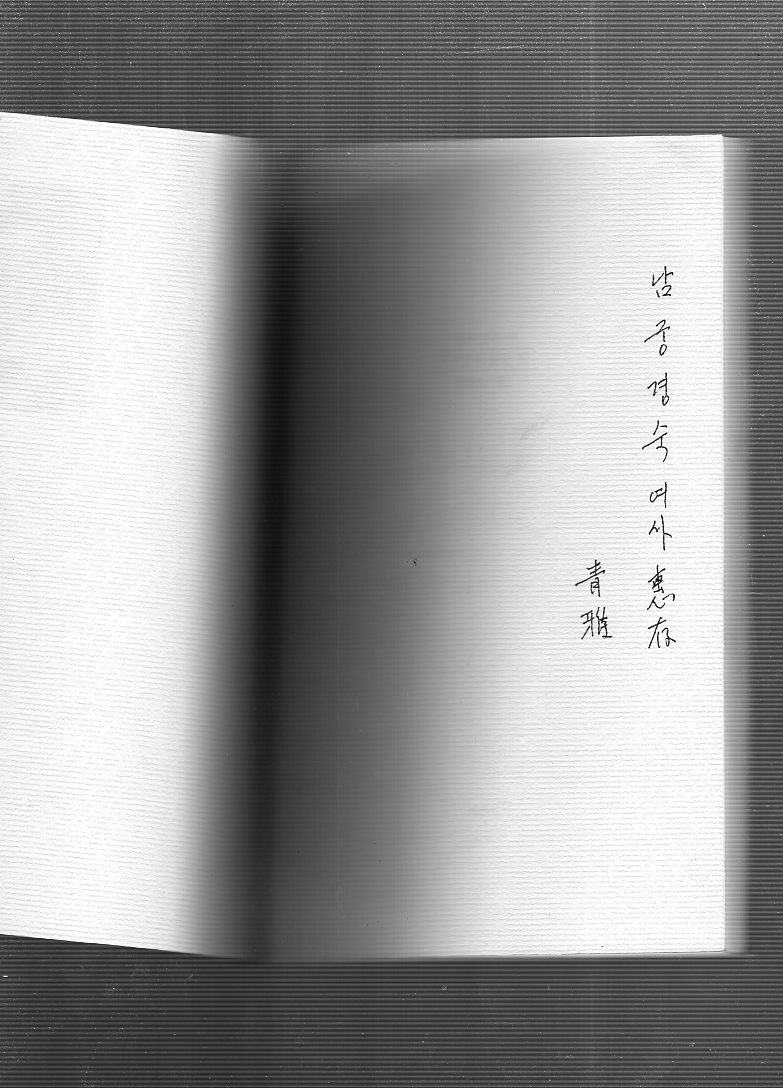 남궁경숙 여사 惠存
靑雅